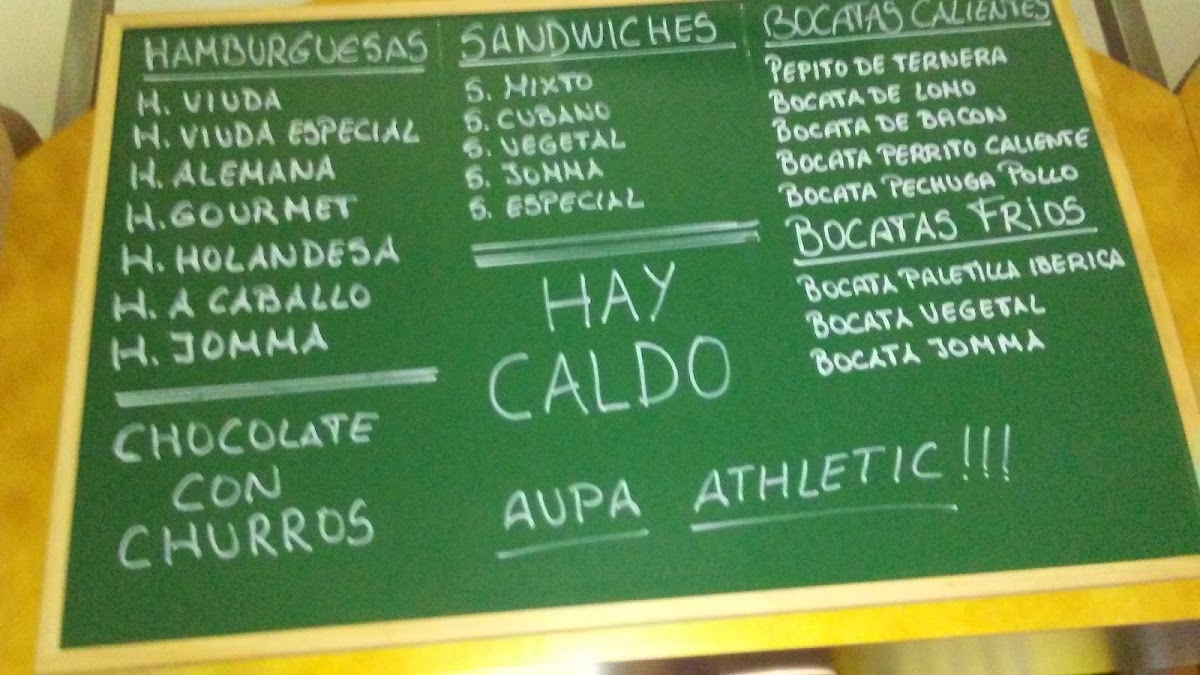 HAMBURGUESAS
H. VIUDA
H. VIUDA ESPECIAL
H. ALEMANA
H. GOURMET
H. HOLANDESA
H. A CABALLO
H. JOMMA
CHOCOLATE
CON
CHURROS
SANDWICHES
S. MIXTO
S. CUBANO
S. VEGETAL
S. JOMMA
S. ESPECIAL
HAY
CALDO
BOCATAS CALIENTES
PEPITO DE TERNERA
BOCATA DE LOMO
BOCATA DE BACON
BOCATA PERRITO CALIENTE
BOCATA PECHUGA POLLO
BOCATAS FRIOS
BOCATA PALETILLA IBERICA
BOCATA VEGETAL
BOCATA JOMMA
AUPA ATHLETIC!!!